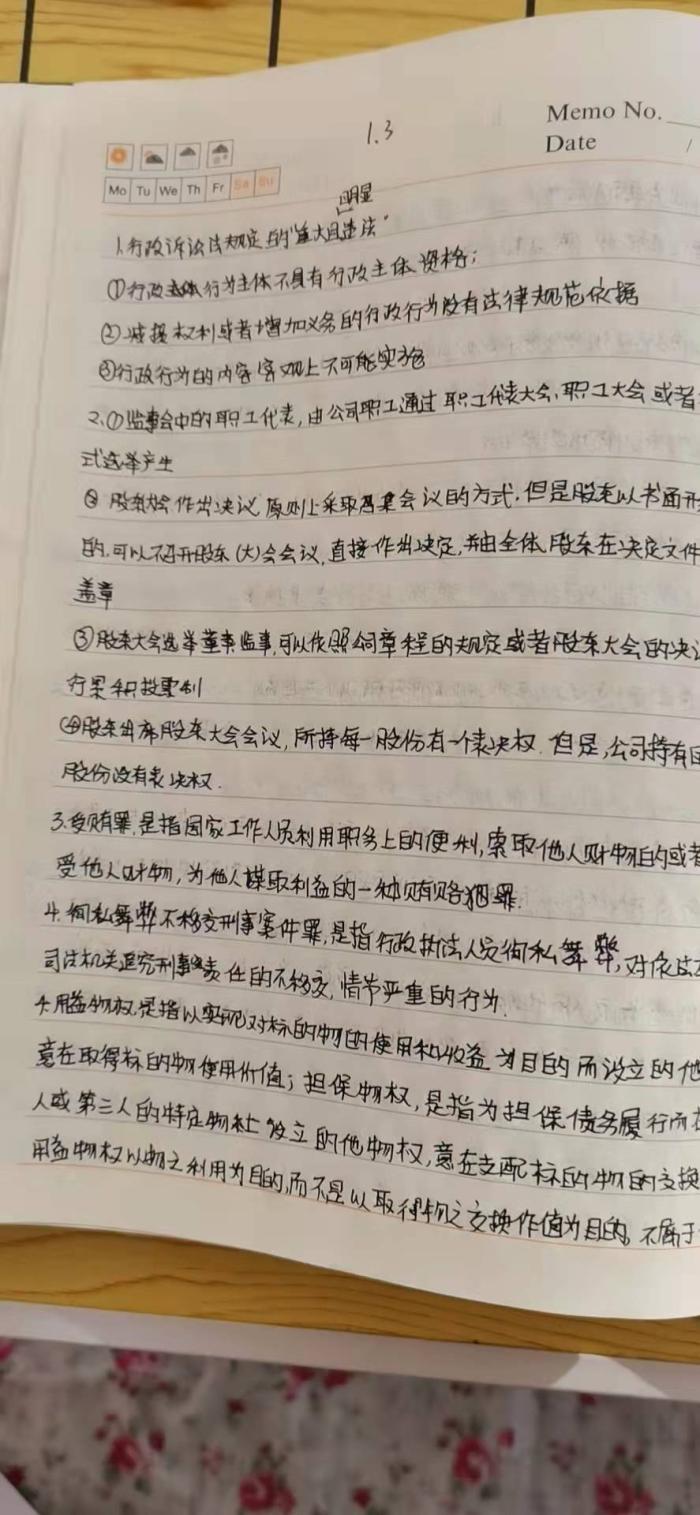 1.3
Memo No.
Date /
Mo Tu We Th Fr Sa Su
明显
1.行政诉讼法规定的"重大且违法"
①行政行为主体不具有行政主体资格;
②减损权利或者增加义务的行政行为没有法律规范依据
③行政行为的内容客观上不可能实施
2.①监事会中的职工代表,由公司职工通过职工代表大会、职工大会或者
式选举产生
② 股东大会作出决议,原则上采取召集会议的方式,但是股东以书面形
的,可以不召开股东(大)会会议,直接作出决定,并由全体股东在决定文件
盖章
③股东大会选举董事监事,可以依照公司章程的规定或者股东大会的决议
行累积投票制
④股东出席股东大会会议,所持每一股份有一个表决权.但是,公司持有
股份没有表决权.
3.受贿罪,是指国家工作人员利用职务上的便利,索取他人财物的或者
受他人财物,为他人谋取利益的一种贿赂犯罪.
4.徇私舞弊不移交刑事案件罪,是指行政执法人员徇私舞弊,对依法
司法机关追究刑事责任的不移交,情节严重的行为.
4.用益物权,是指以实现对标的物的使用和收益为目的而设立的他
意在取得标的物使用价值;担保物权,是指为担保债务履行而在
人或第三人的特定物上设立的他物权,意在支配标的物的交换
用益物权以物之利用为目的,而不是以取得物之交换作值为目的,不属于